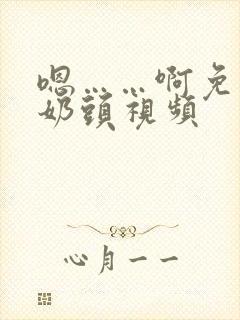 嗯……啊免
奶頭視頻
心月一一